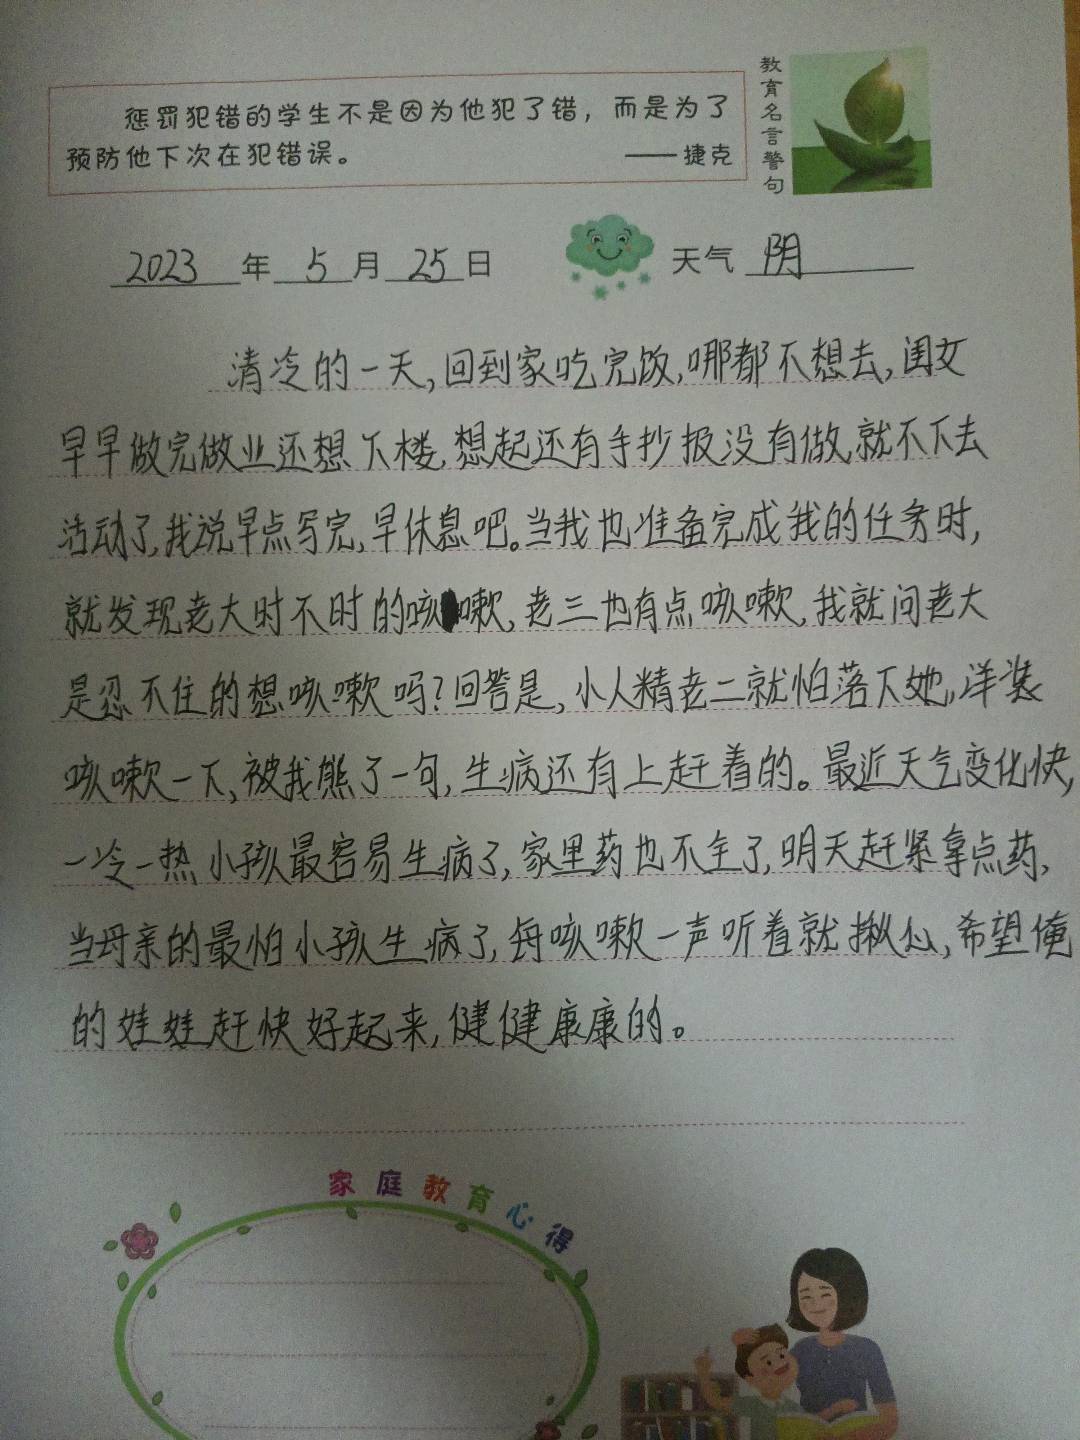 惩罚犯错的学生不是因为他犯了错，而是为了
预防他下次在犯错误。 ——捷克
教育名言警句
2023年5月25日 天气 阴
清冷的一天,回到家吃完饭,哪都不想去,闺女
早早做完做业还想下楼,想起还有手抄报没有做,就不下去
活动了,我说早点写完,早休息吧。当我也准备完成我的任务时,
就发现老大时不时的咳嗽,老三也有点咳嗽,我就问老大
是忍不住的想咳嗽吗?回答是,小人精老二就怕落下她,洋装
咳嗽一下,被我熊了一句,生病还有上赶着的。最近天气变化快,
一冷一热小孩最容易生病了,家里药也不全了,明天赶紧拿点药,
当母亲的最怕小孩生病了,每咳嗽一声听着就揪心,希望俺
的娃娃赶快好起来,健健康康的。
家庭教育心得